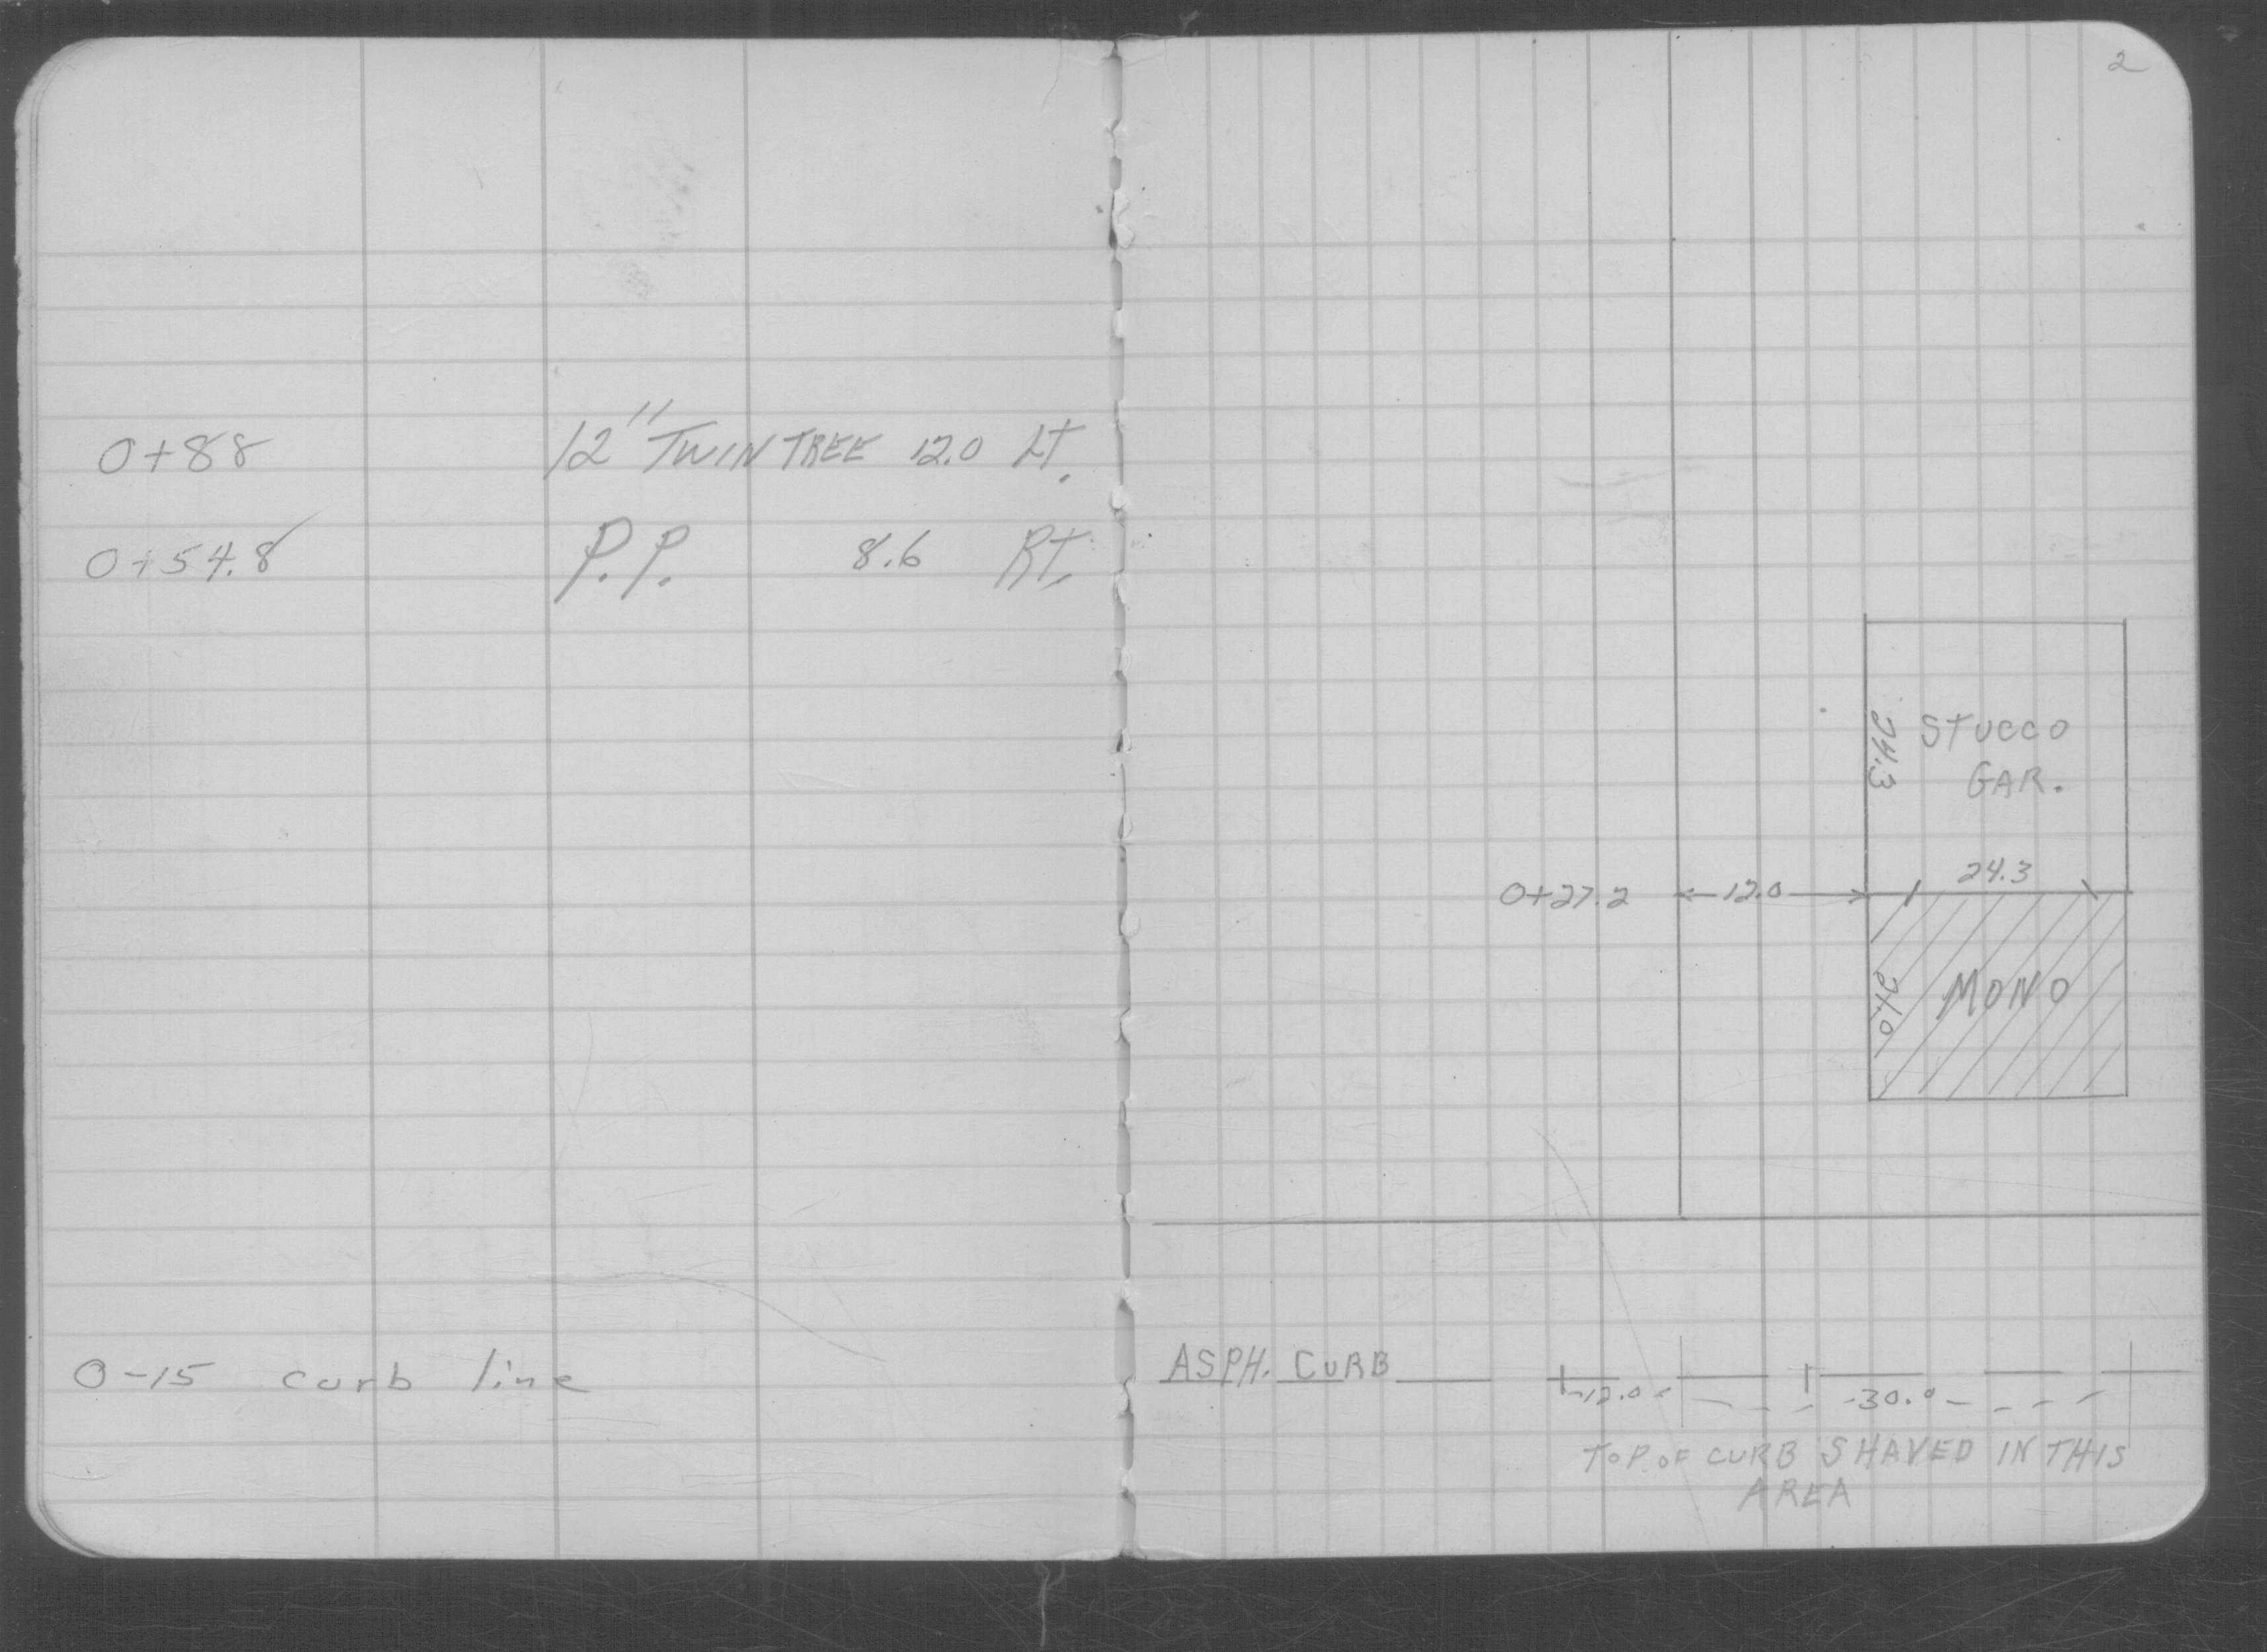 0+88 12" TWIN TREE 12.0 LT.
0+54.8 P.P. 8.6 RT.
0-15 curb line
2
24.3
STUCCO
GAR.
24.3
0+27.2 12.0
MONO
ASPH. CURB
12.0 30.0
TOP OF CURB SHAVED IN THIS
AREA